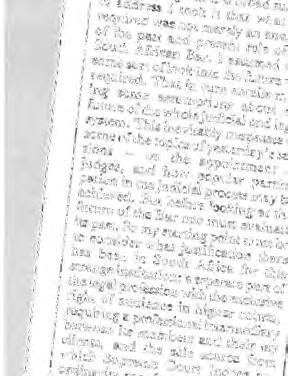 to address I took it that what
required was not merely an ana
of the past and present role of
South African Bar. I assumed
some sort of look into the future
required. That in turn entails m
ing some assumptions about
future of the whole judicial and leg
system. This inevitably trespasses
some of the topics of yesterday's se
sions – on the appointment
judges, and how popular partici
pation in the judicial process may be
achieved. But before looking at the
future of the Bar one must evaluate
its past. So my starting point must be
to consider what justification there
has been in South Africa for this
strange institution: a separate part of
the legal profession with the exclusive
right of audience in higher courts,
requiring a professional intermediary
between its members and their
clients, and the sole source from
which Supreme Court judges